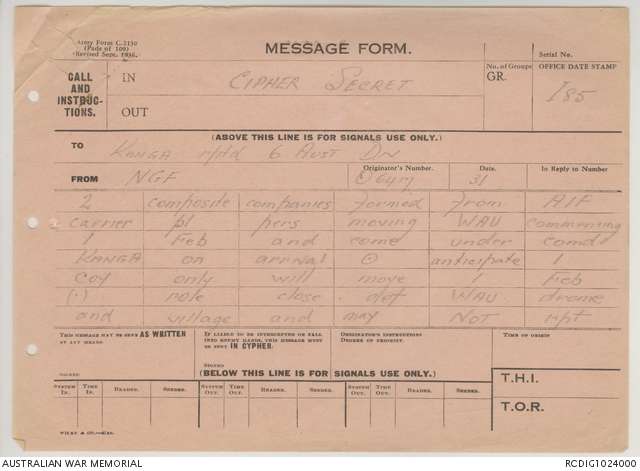 Army Form C.2130
(Pads of 100)
(Revised Sept. 1936.
MESSAGE FORM.
Serial No.
CALL AND INSTRUC-TIONS.
IN
CIPHER SECRET
No. of Groups
GR.
OFFICE DATE STAMP
I85
OUT
(ABOVE THIS LINE IS FOR SIGNALS USE ONLY.)
TO
KANGA rptd 6 AUST DIV
FROM
NGF
Originator's Number.
O647
Date.
31
In Reply to Number
2 composite companies formed from AIF
carrier pl pers moving WAU commencing
1 Feb and come under comd
KANGA on arrival ⊙ anticipate 1
coy only will move 1 Feb
(.) role close def WAU drome
and village and may NOT rpt
THIS MESSAGE MAY BE SENT AS WRITTEN
BY ANY MEANS.
SIGNED
IF LIABLE TO BE INTERCEPTED OR FALL
INTO ENEMY HANDS, THIS MESSAGE MUST
BE SENT IN CYPHER.
SIGNED
ORIGINATOR'S INSTRUCTIONS
DEGREE OF PRIORITY.
TIME OF ORIGIN
(BELOW THIS LINE IS FOR SIGNALS USE ONLY.)
SYSTEM IN. TIME IN. READER. SENDER. SYSTEM OUT. TIME OUT. READER. SENDER. SYSTEM OUT. TIME OUT. READER. SENDER.
T.H.I.
T.O.R.
AUSTRALIAN WAR MEMORIAL
RCDIG1024000